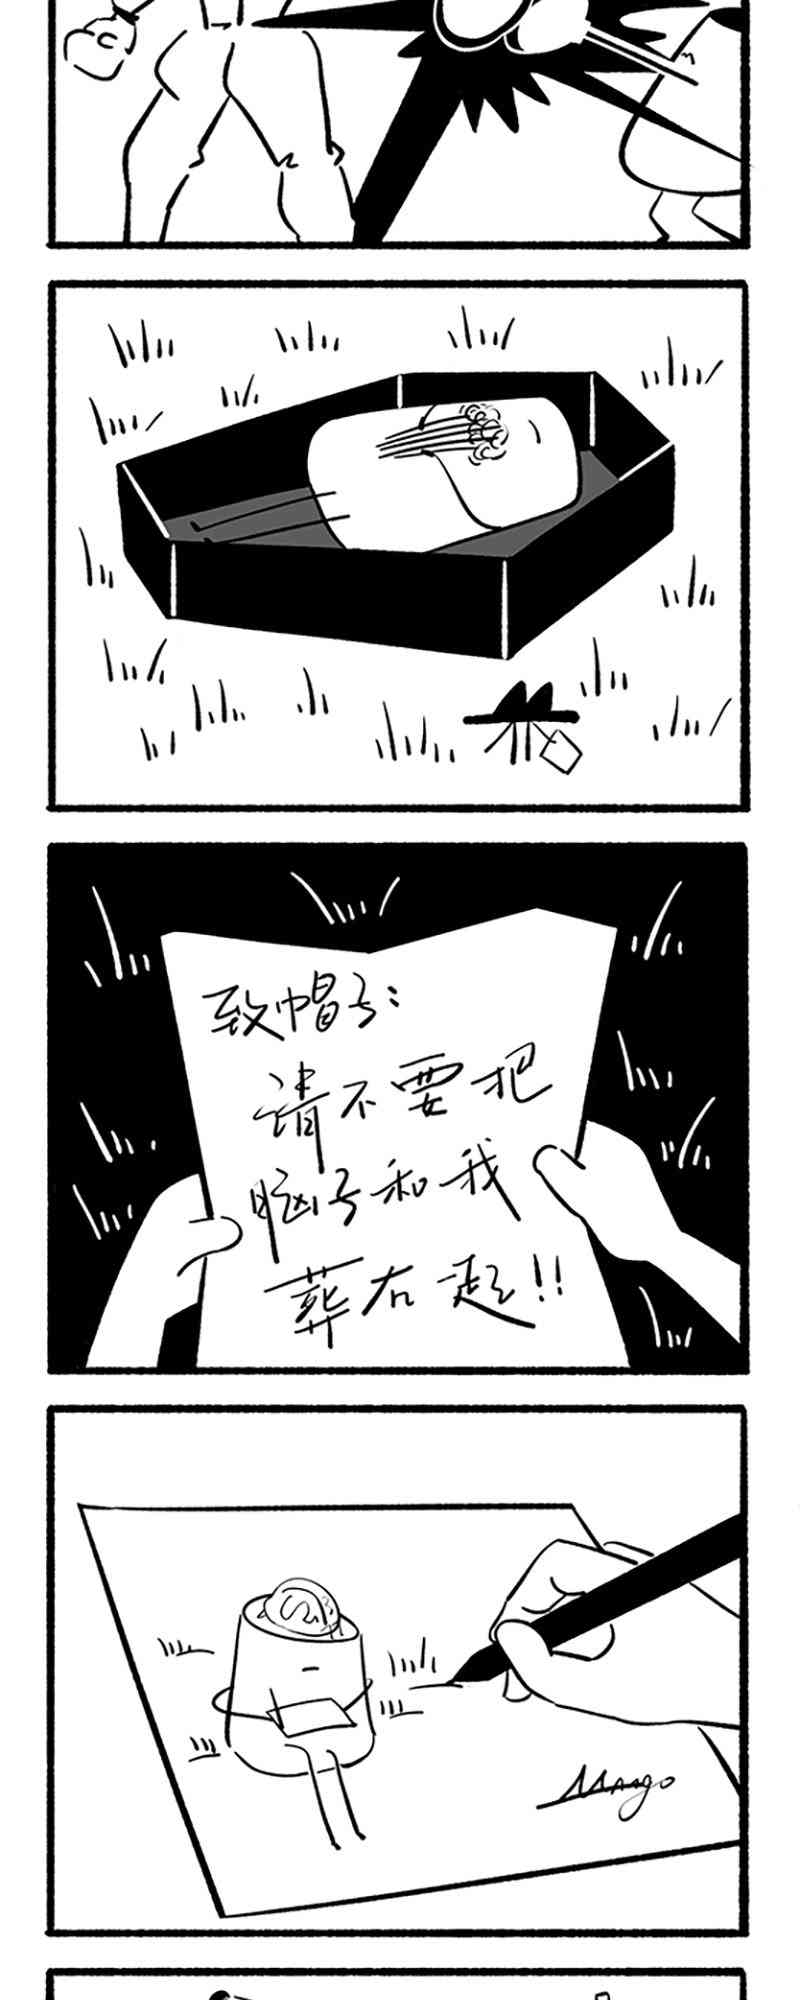 致帽子:
请不要把
脑子和我
葬在一起!!
Mango